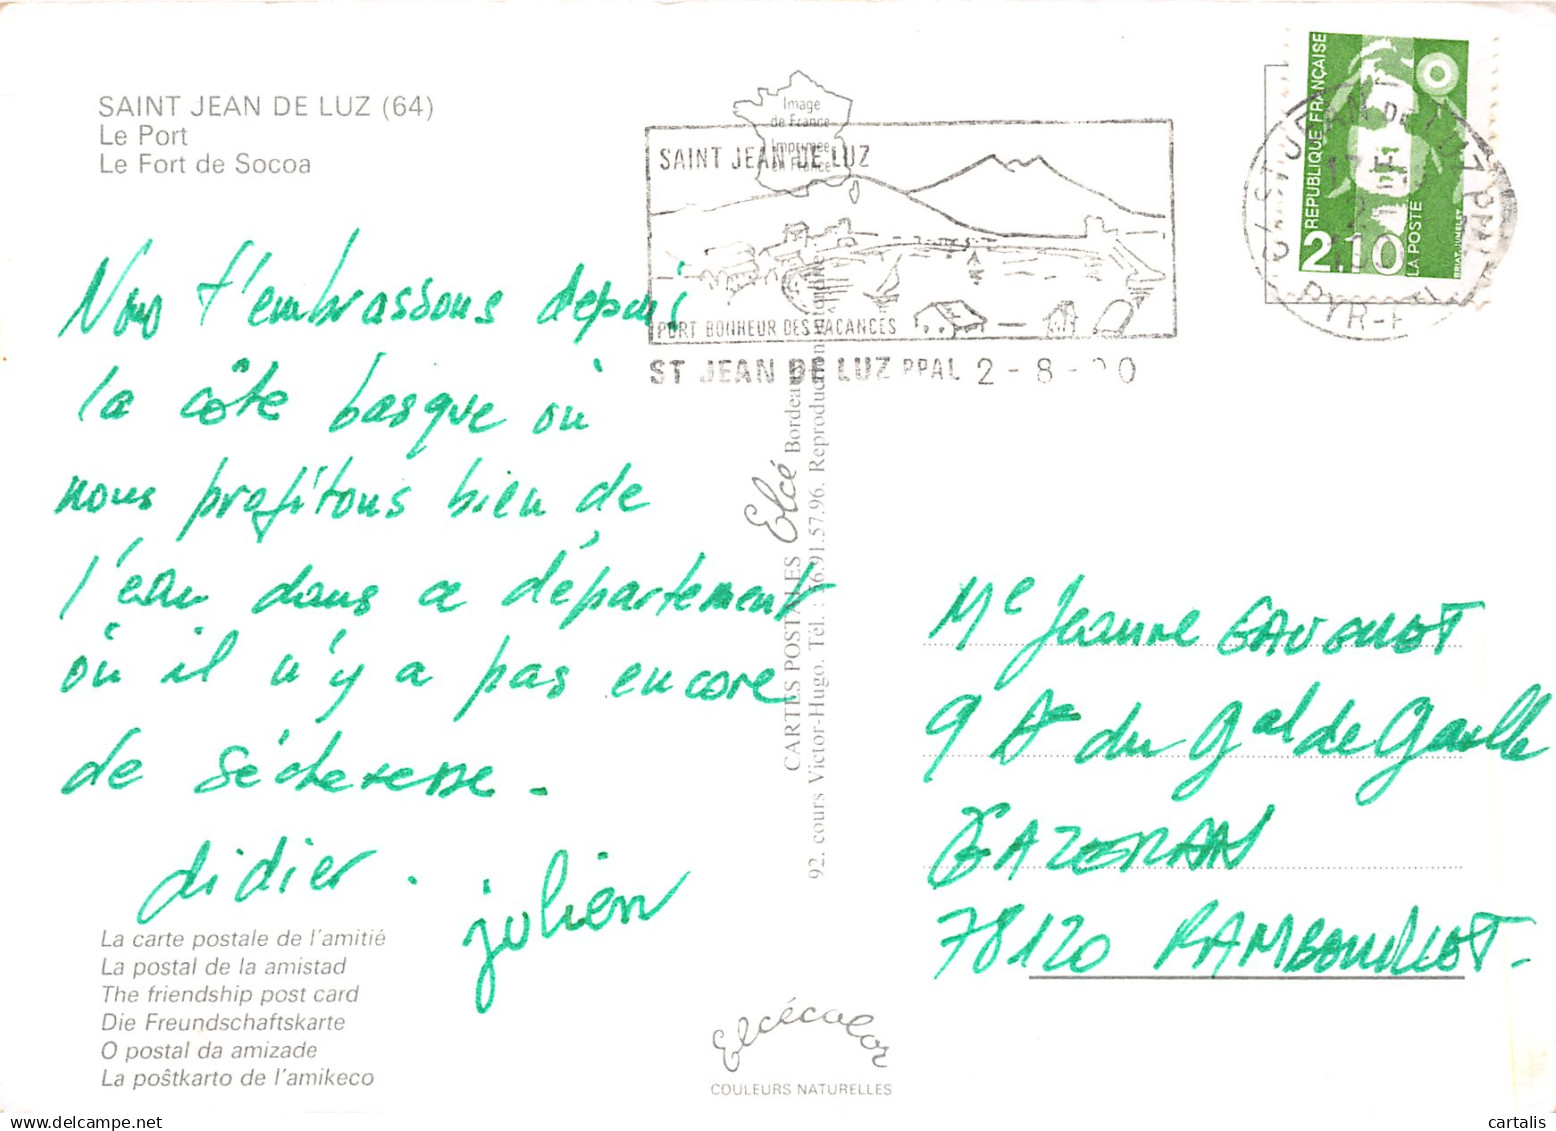 SAINT JEAN DE LUZ (64)
Le Port
Le Fort de Socoa
Image
de France
Imprimée
en France
SAINT JEAN DE LUZ
PORT BONHEUR DES VACANCES
ST JEAN DE LUZ PPAL 2 - 8 -
REPUBLIQUE FRANÇAISE
2.10
LA POSTE
ST JEAN DE LUZ
17 H
Nous t'embrassons depuis
la côte basque où
nous profitons bien de
l'eau dans ce département
où il n'y a pas encore
de sécheresse.
didier.
julien
La carte postale de l'amitié
La postal de la amistad
The friendship post card
Die Freundschaftskarte
O postal da amizade
La poŝtkarto de l'amikeco
CARTES POSTALES Elcé Bordeaux
92, cours Victor-Hugo. Tél. : 56.91.57.96. Reproduction interdite
Elcécolor
COULEURS NATURELLES
Me Jeanne GAVOUOT
9 Ae du Gal de Gaulle
GAZERAN
78120 RAMBOUILLET.
cartalis